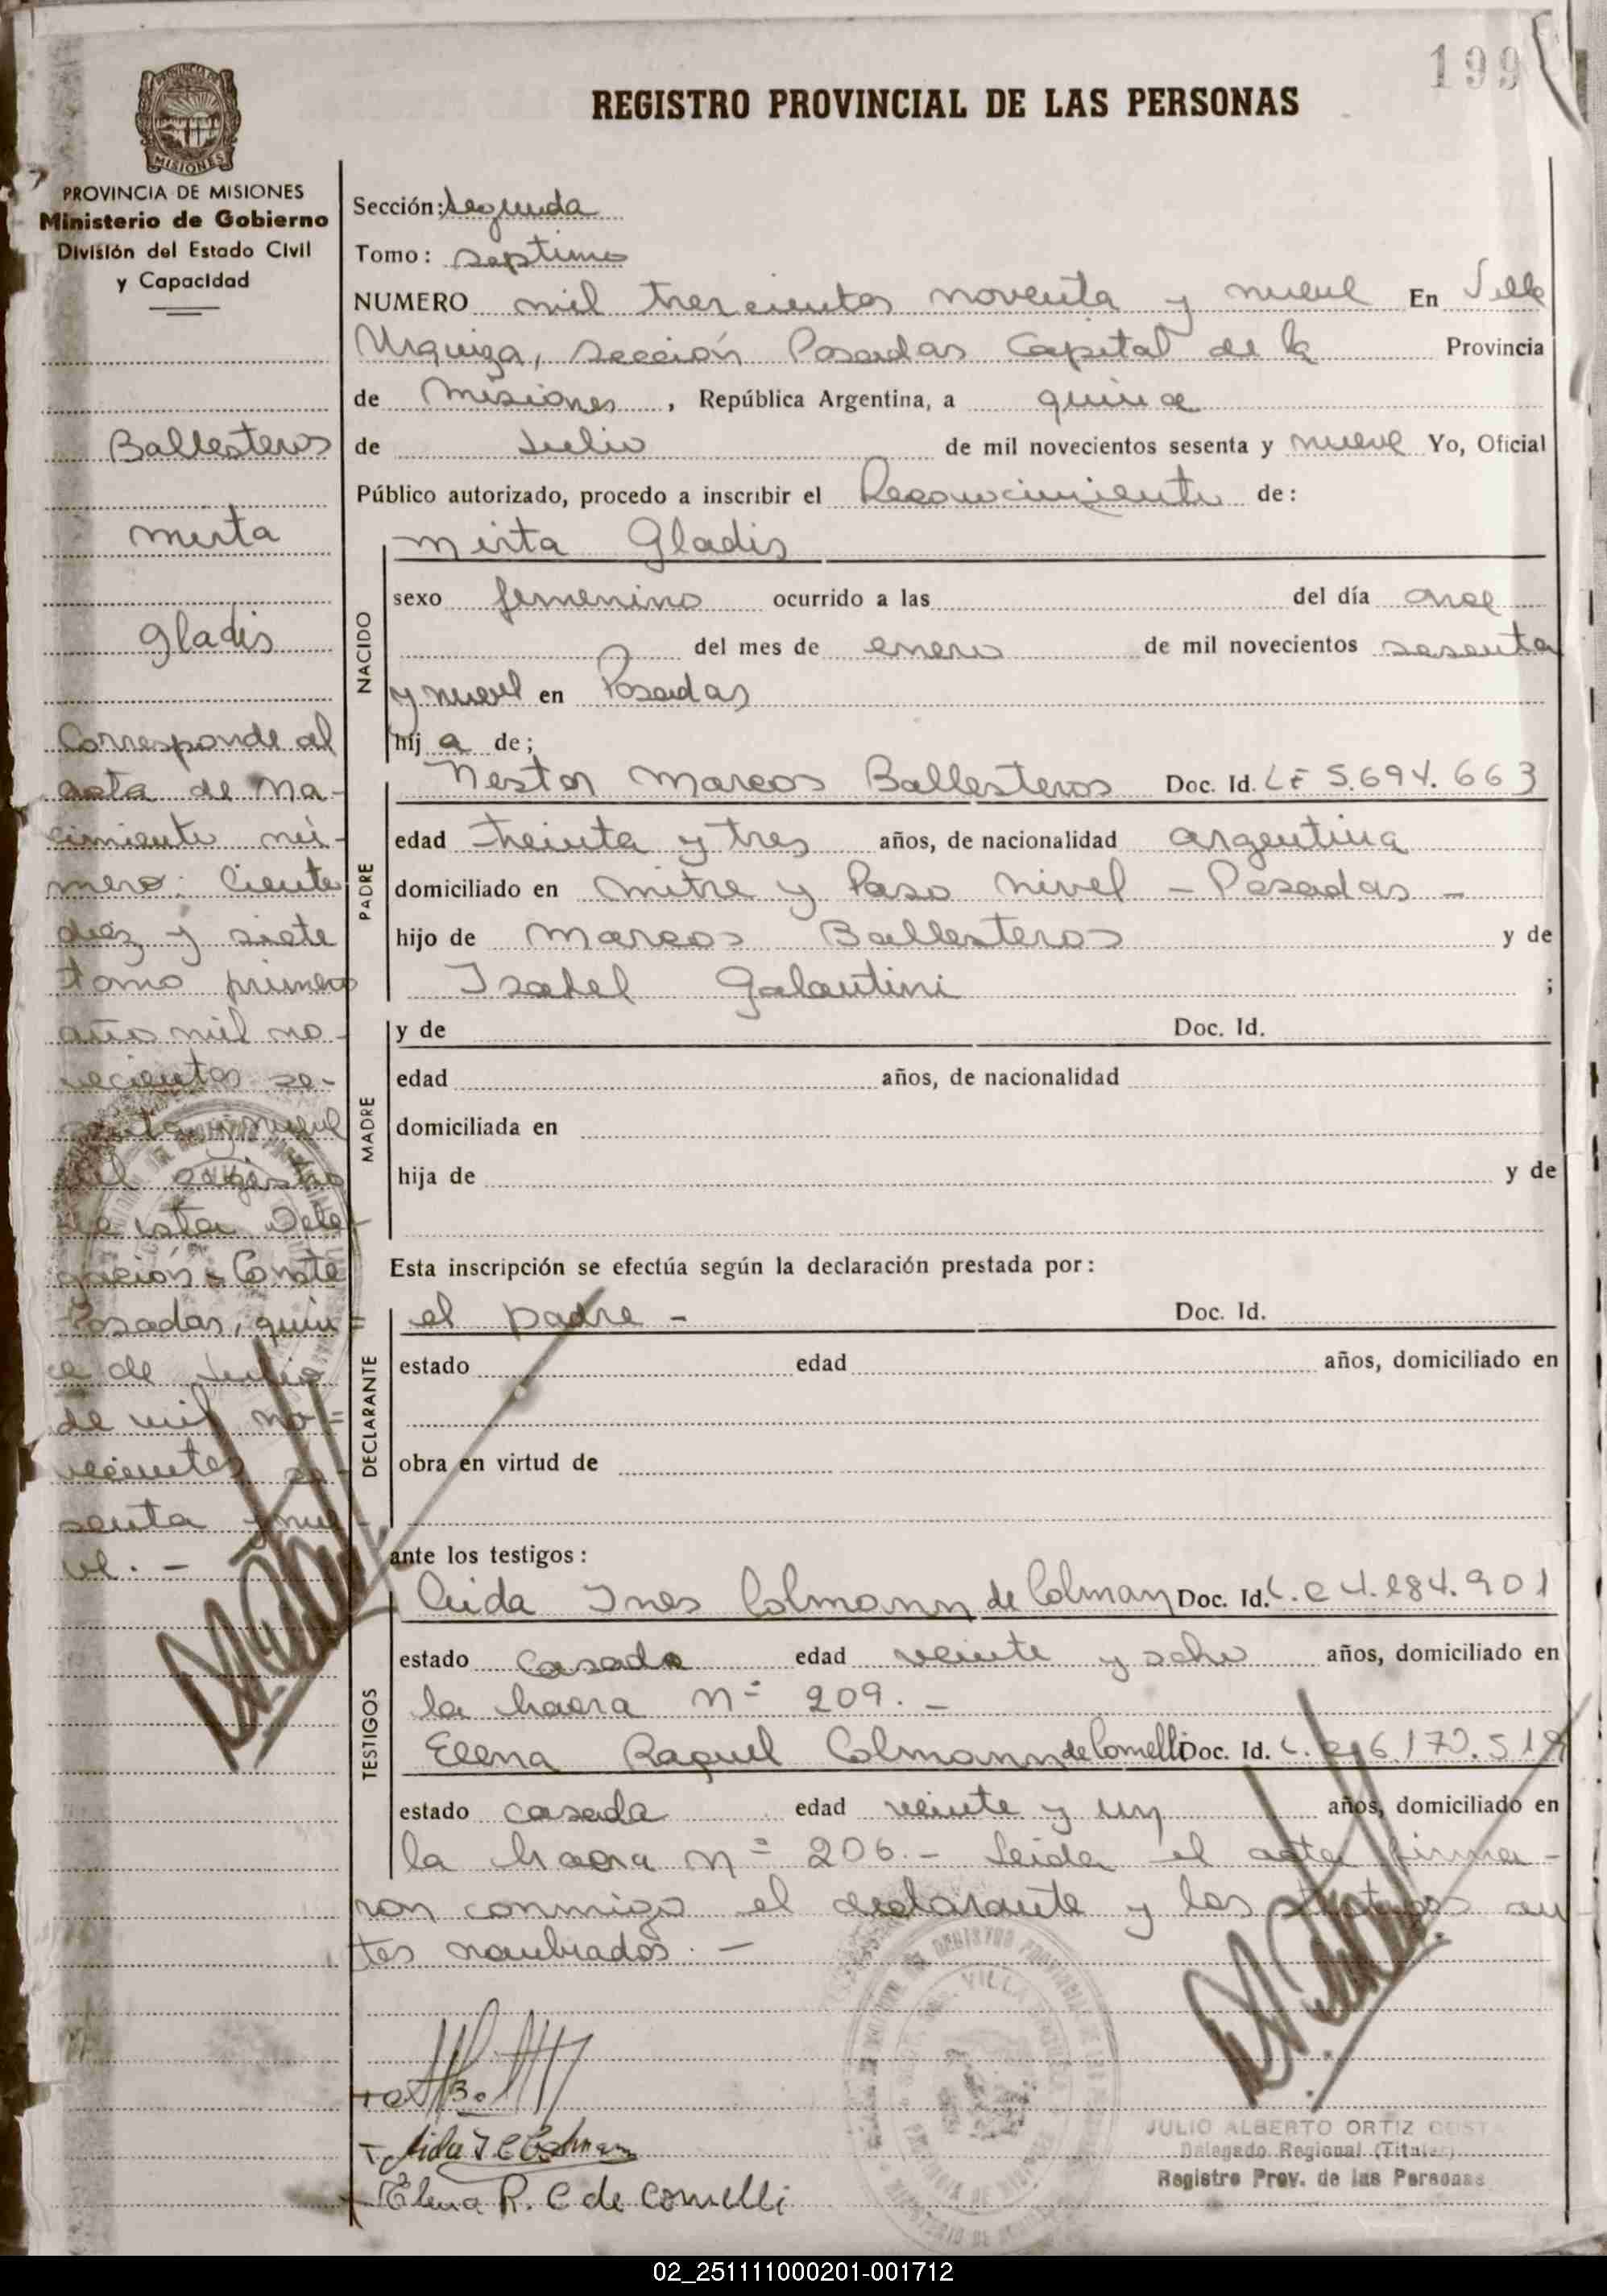 199
REGISTRO PROVINCIAL DE LAS PERSONAS
MISIONES
PROVINCIA DE MISIONES
Ministerio de Gobierno
División del Estado Civil
y Capacidad
Ballesteros
Mirta
Gladis
Corresponde al
acta de Na-
cimiento nú-
mero: Ciento
diez y siete
tomo primero
año mil no-
vecientos se-
senta y nueve
del registro
de esta Dele-
gación. Conste
Posadas, quin=
ce de Julio
de mil no=
vecientos se-
senta y nue-
ve. -
Sección: Segunda
Tomo: Septimo
NUMERO mil trescientos noventa y nueve En Villa
Urquiza, Sección Posadas Capital de la Provincia
de Misiones, República Argentina, a quince
de Julio de mil novecientos sesenta y nueve Yo, Oficial
Público autorizado, procedo a inscribir el Reconocimiento de:
NACIDO
Mirta Gladis
sexo femenino ocurrido a las del día once
del mes de enero de mil novecientos sesenta
y nueve en Posadas
hij a de;
PADRE
Nestor Marcos Ballesteros Doc. Id. LE 5.694.663
edad treinta y tres años, de nacionalidad argentina
domiciliado en Mitre y Paso Nivel - Posadas -
hijo de Marcos Ballesteros y de
Isabel Galantini ;
MADRE
y de Doc. Id.
edad años, de nacionalidad
domiciliada en
hija de y de
Esta inscripción se efectúa según la declaración prestada por:
DECLARANTE
el padre - Doc. Id.
estado edad años, domiciliado en
obra en virtud de
ante los testigos:
TESTIGOS
Aida Ines Colmann de Colman Doc. Id. L.C 4.284.901
estado Casada edad veinte y ocho años, domiciliado en
la hacra Nº 209. -
Elena Raquel Colmann de Comelli Doc. Id. L.C 6.172.519
estado casada edad veinte y un años, domiciliado en
la hacra Nº 206. - Leida el acta firma-
ron conmigo el declarante y los testigos an-
tes nombrados. -
Aida I C Colman
Elena R. C de Comelli
VILLA URQUIZA
JULIO ALBERTO ORTIZ COSTA
Delegado Regional (Titular)
Registro Prov. de las Personas
02_251111000201-001712